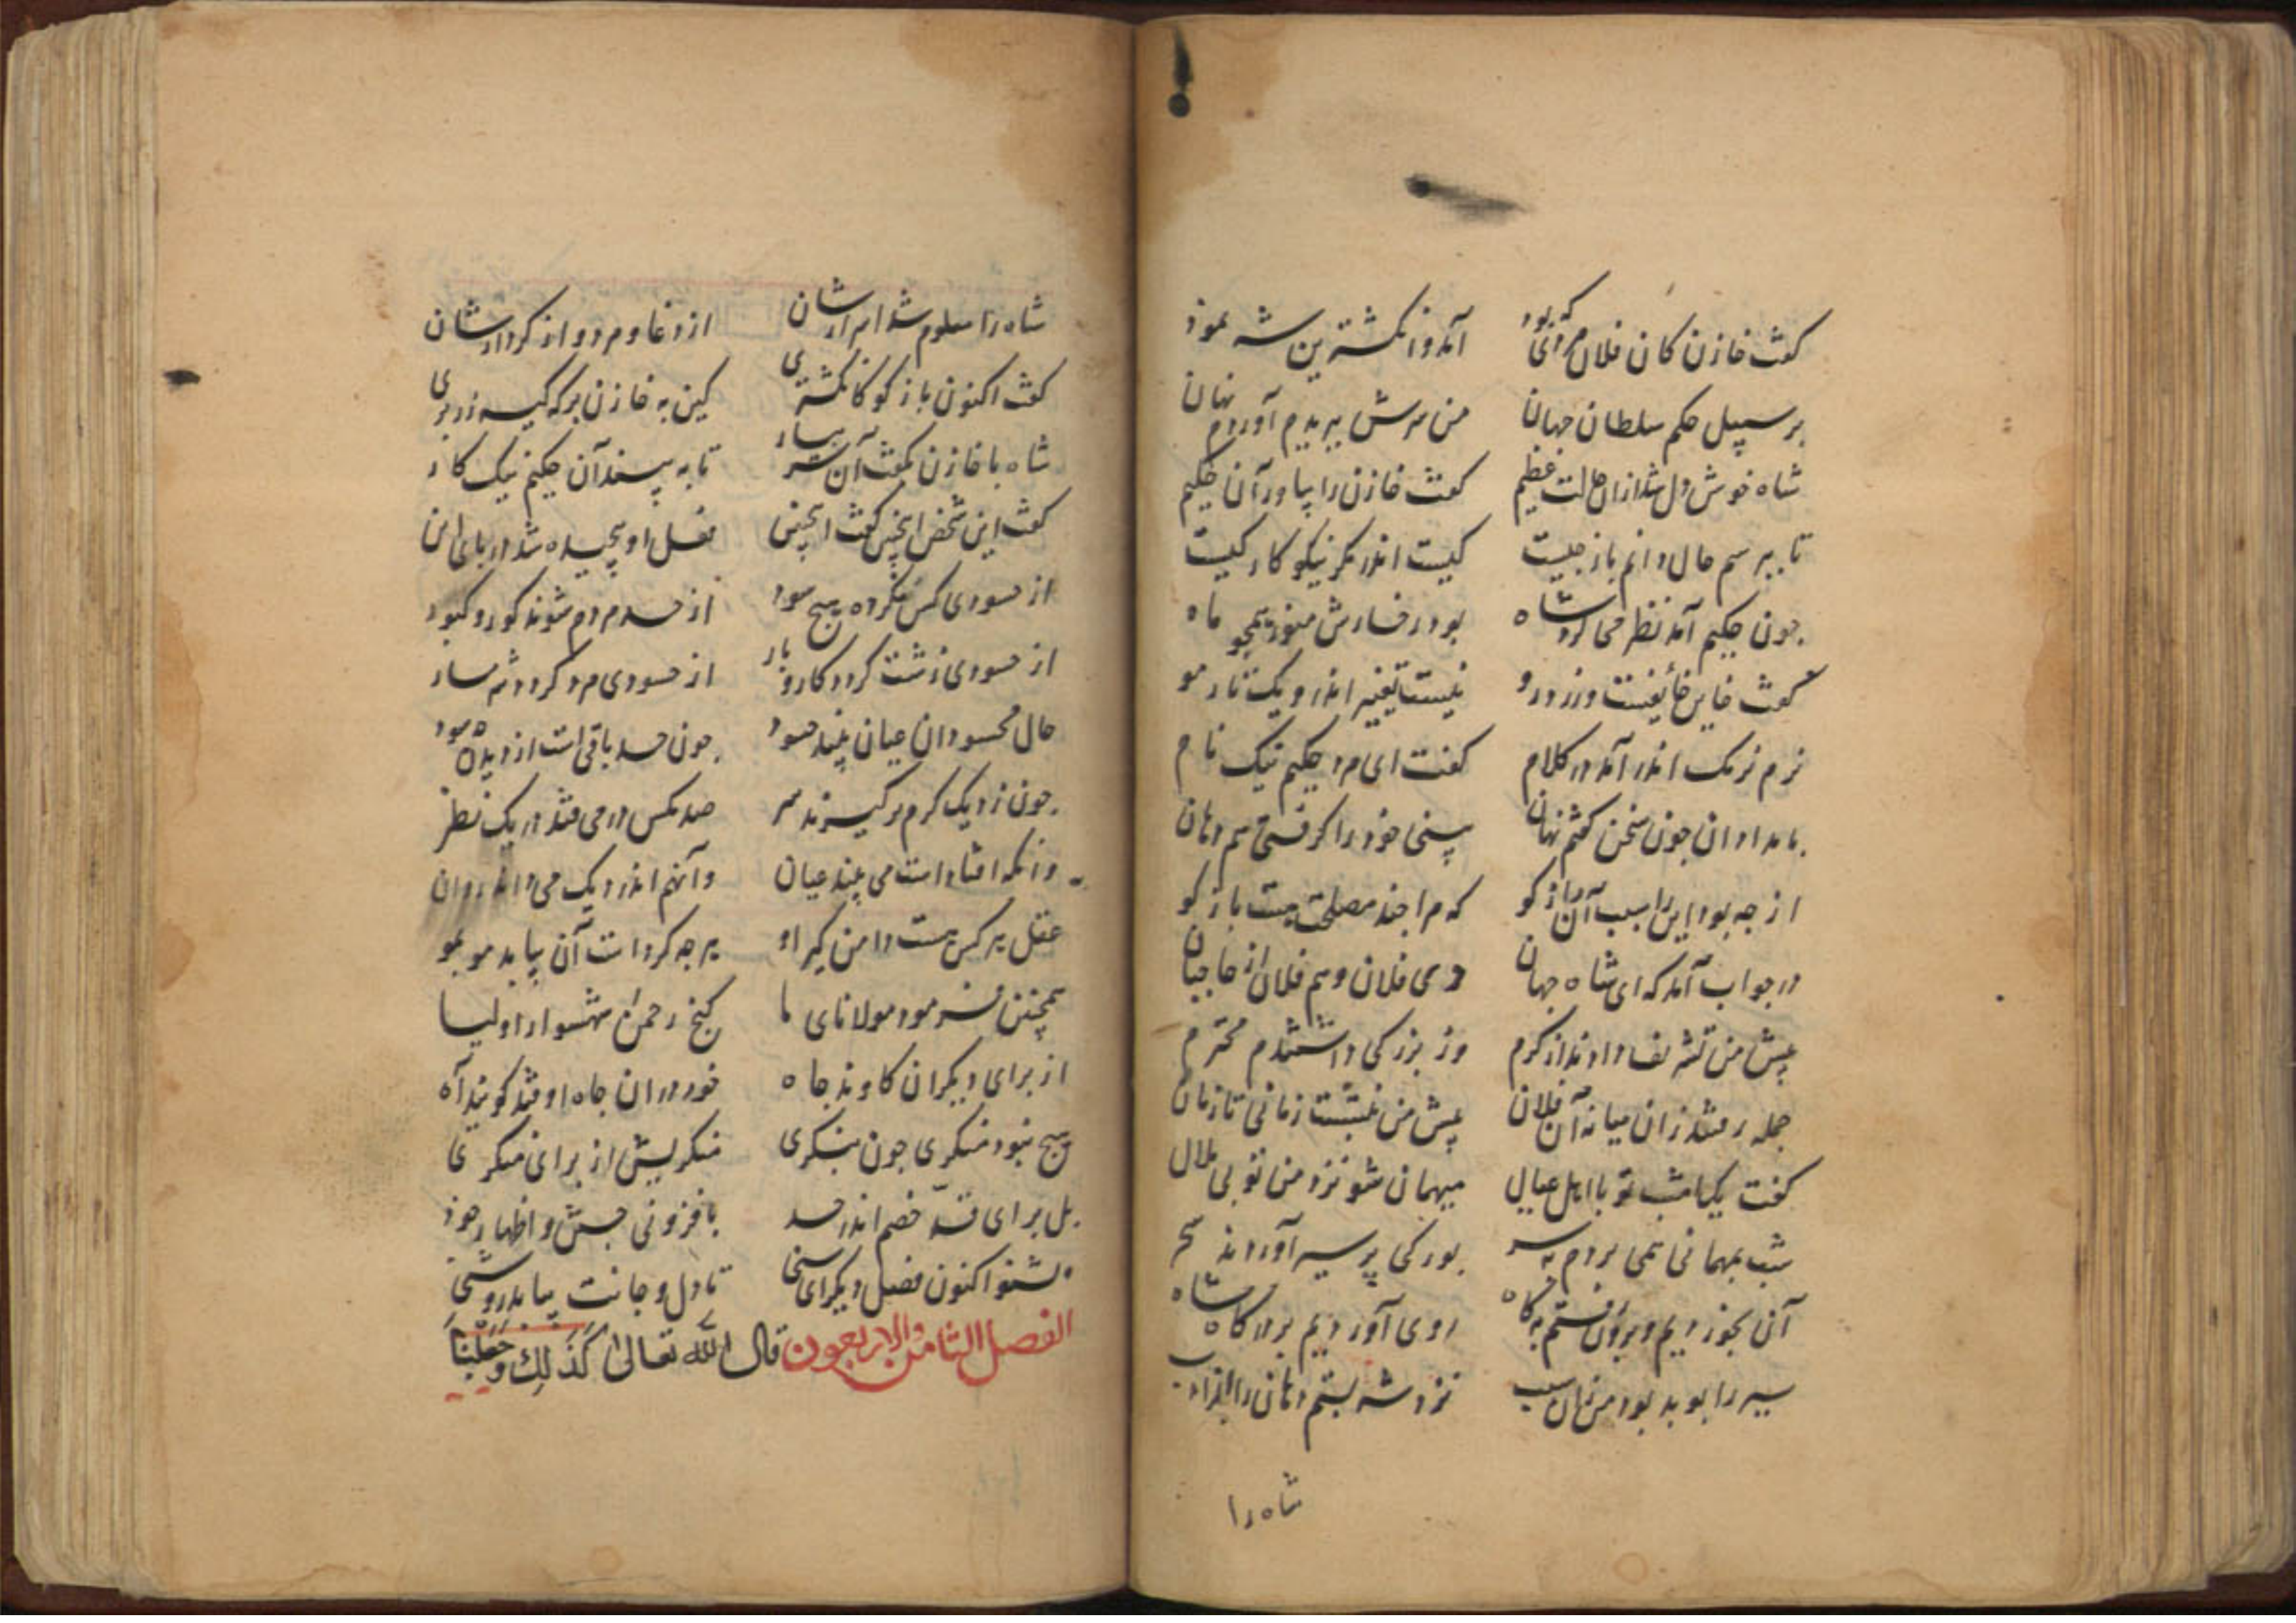 گفت خازن کان فلان مردی که بود آمد و انگشترین شه نمود
بر سبیل حکم سلطان جهان من سرش ببریدم آوردم نهان
شاه خوش دل شد ازان حالت عظیم گفت خازن را بیاور آن حکیم
تا بپرسم حال دانم باز چیست کیست اندر مکر نیکو کار کیست
چون حکیم آمد نظر می کرد شاه بود رخسارش منور همچو ماه
گفت خاین خائفست و زرد رو نیست تغییر اندرو یک تار مو
نرم نرمک اندر آمد در کلام گفت ای مرد حکیم نیک نام
بامدادان چون سخن گفتم نهان بینی خود را گرفتی هم دهان
از چه بود این را سبب آن باز گو که مرا چند مصلحت هست باز گو
در جواب آمد که ای شاه جهان دی فلان و هم فلان از حاجبان
پیش من تشریف دادند از کرم وز بزرگی داشتندم محترم
جمله رفتند زان میانه آن فلان پیش من بنشست زمانی تا زمان
گفت یکامشب تو با اهل عیال میهمان شو نزد من تو بی ملال
شب بمهمانی همی بردم بسر بورکی پر سیر آوردند سحر
آن بخوردیم و برون رفتم بگاه روی آوردیم بدرگاه شاه
سیر را بو بد بود من زان سبب نزد شه بستم دهان را از ادب
شاه را
شاه را معلوم شد اسرارشان از دغا و مرد و از کردارشان
گفت اکنون باز گو کانگشتری کین به خازن برکه کیسه زربری
شاه با خازن بگفت آن سر بیار تا به بیند آن حکیم نیک کار
گفت این شخص اینچنین گفت اینچنین نعل او پیچیده شد در پای این
از حسودی کس نکرده هیچ سود از حسد مردم شوند کور و کبود
از حسودی زشت گردد کار و بار از حسودی مرد گردد شرمسار
حال محسودان عیان بیند حسود چون حسد باقی است از دیده چه سود
چون ز دیک گرم برگیرند سر صد مگس در می فتد در یک نظر
وانکه افتاداست می بیند عیان وآنهم اندر دیک می راند روان
عقل هر کس هست دامن گیر او هر چه کرداست آن بیابد مو بمو
همچنین فرمود مولانای ما گنج رحمن شهسوار اولیا
از برای دیگران کاوند چاه خود در ان چاه اوفتند گویند آه
هیچ نبود منکری چون بنگری منکریش از برای منکری
بل برای قهر خصم اندر حسد یا فزونی جستن و اظهار خود
بشنو اکنون فصل دیگر ای سخی تا دل و جانت بیابد روشنی
الفصل الثامن والاربعون قال الله تعالی کَذَلِكَ وَجَعَلْنَا